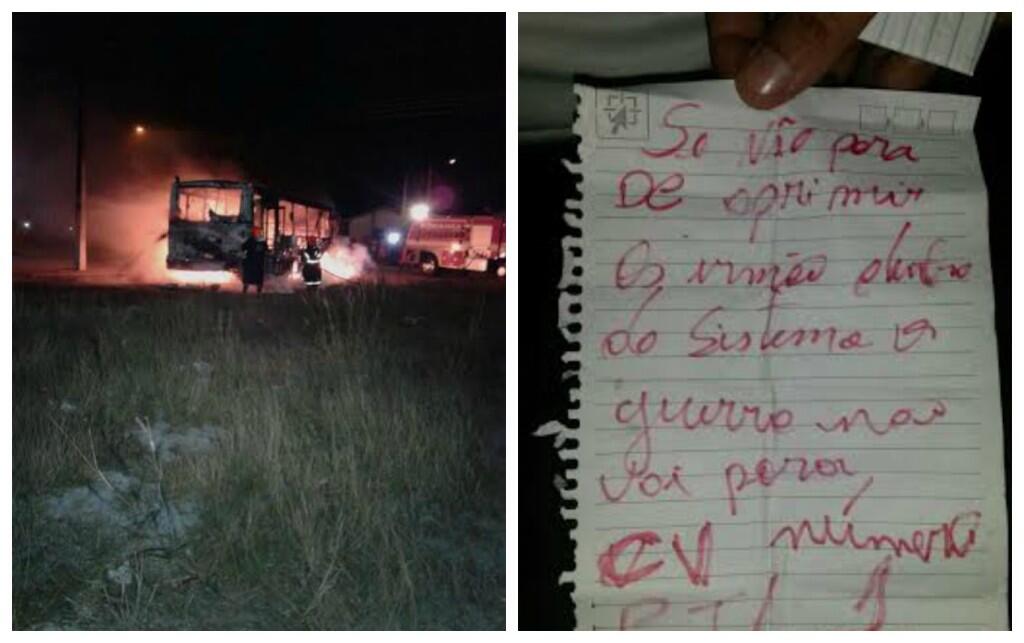 Se vão para
De oprimir
Os irmão dentro
do Sistema a
guerra não
vai para,
CV número
PT/ 1